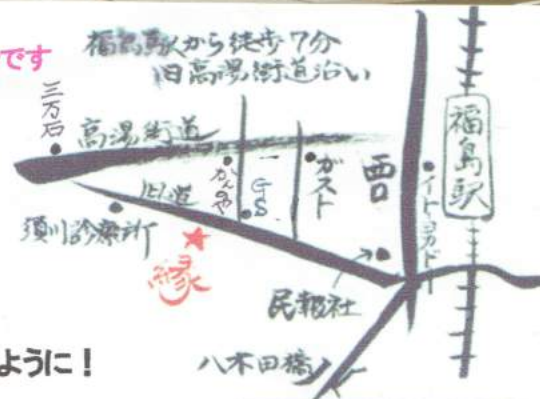 です
福島駅から徒歩7分
旧高湯街道沿い
三万石
高湯街道
旧道
かんのや
GS
ガスト
西口
イトーヨーカドー
福島駅
須川診療所
縁
民報社
八木田橋
ように！